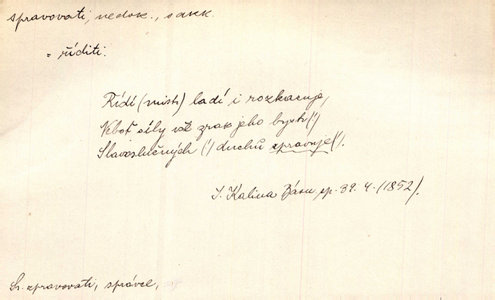 spravovati, nedok., s akk.
= říditi.
Řídí (mistr) ladí i rozkazuje,
Neboť síly víž zrak jeho bystr(!)
Slavoslučných (!) duchů spravuje(!).
J. Kalina Básn. sp. 39. 4. (1852).
Sr. zpravovati, správce,